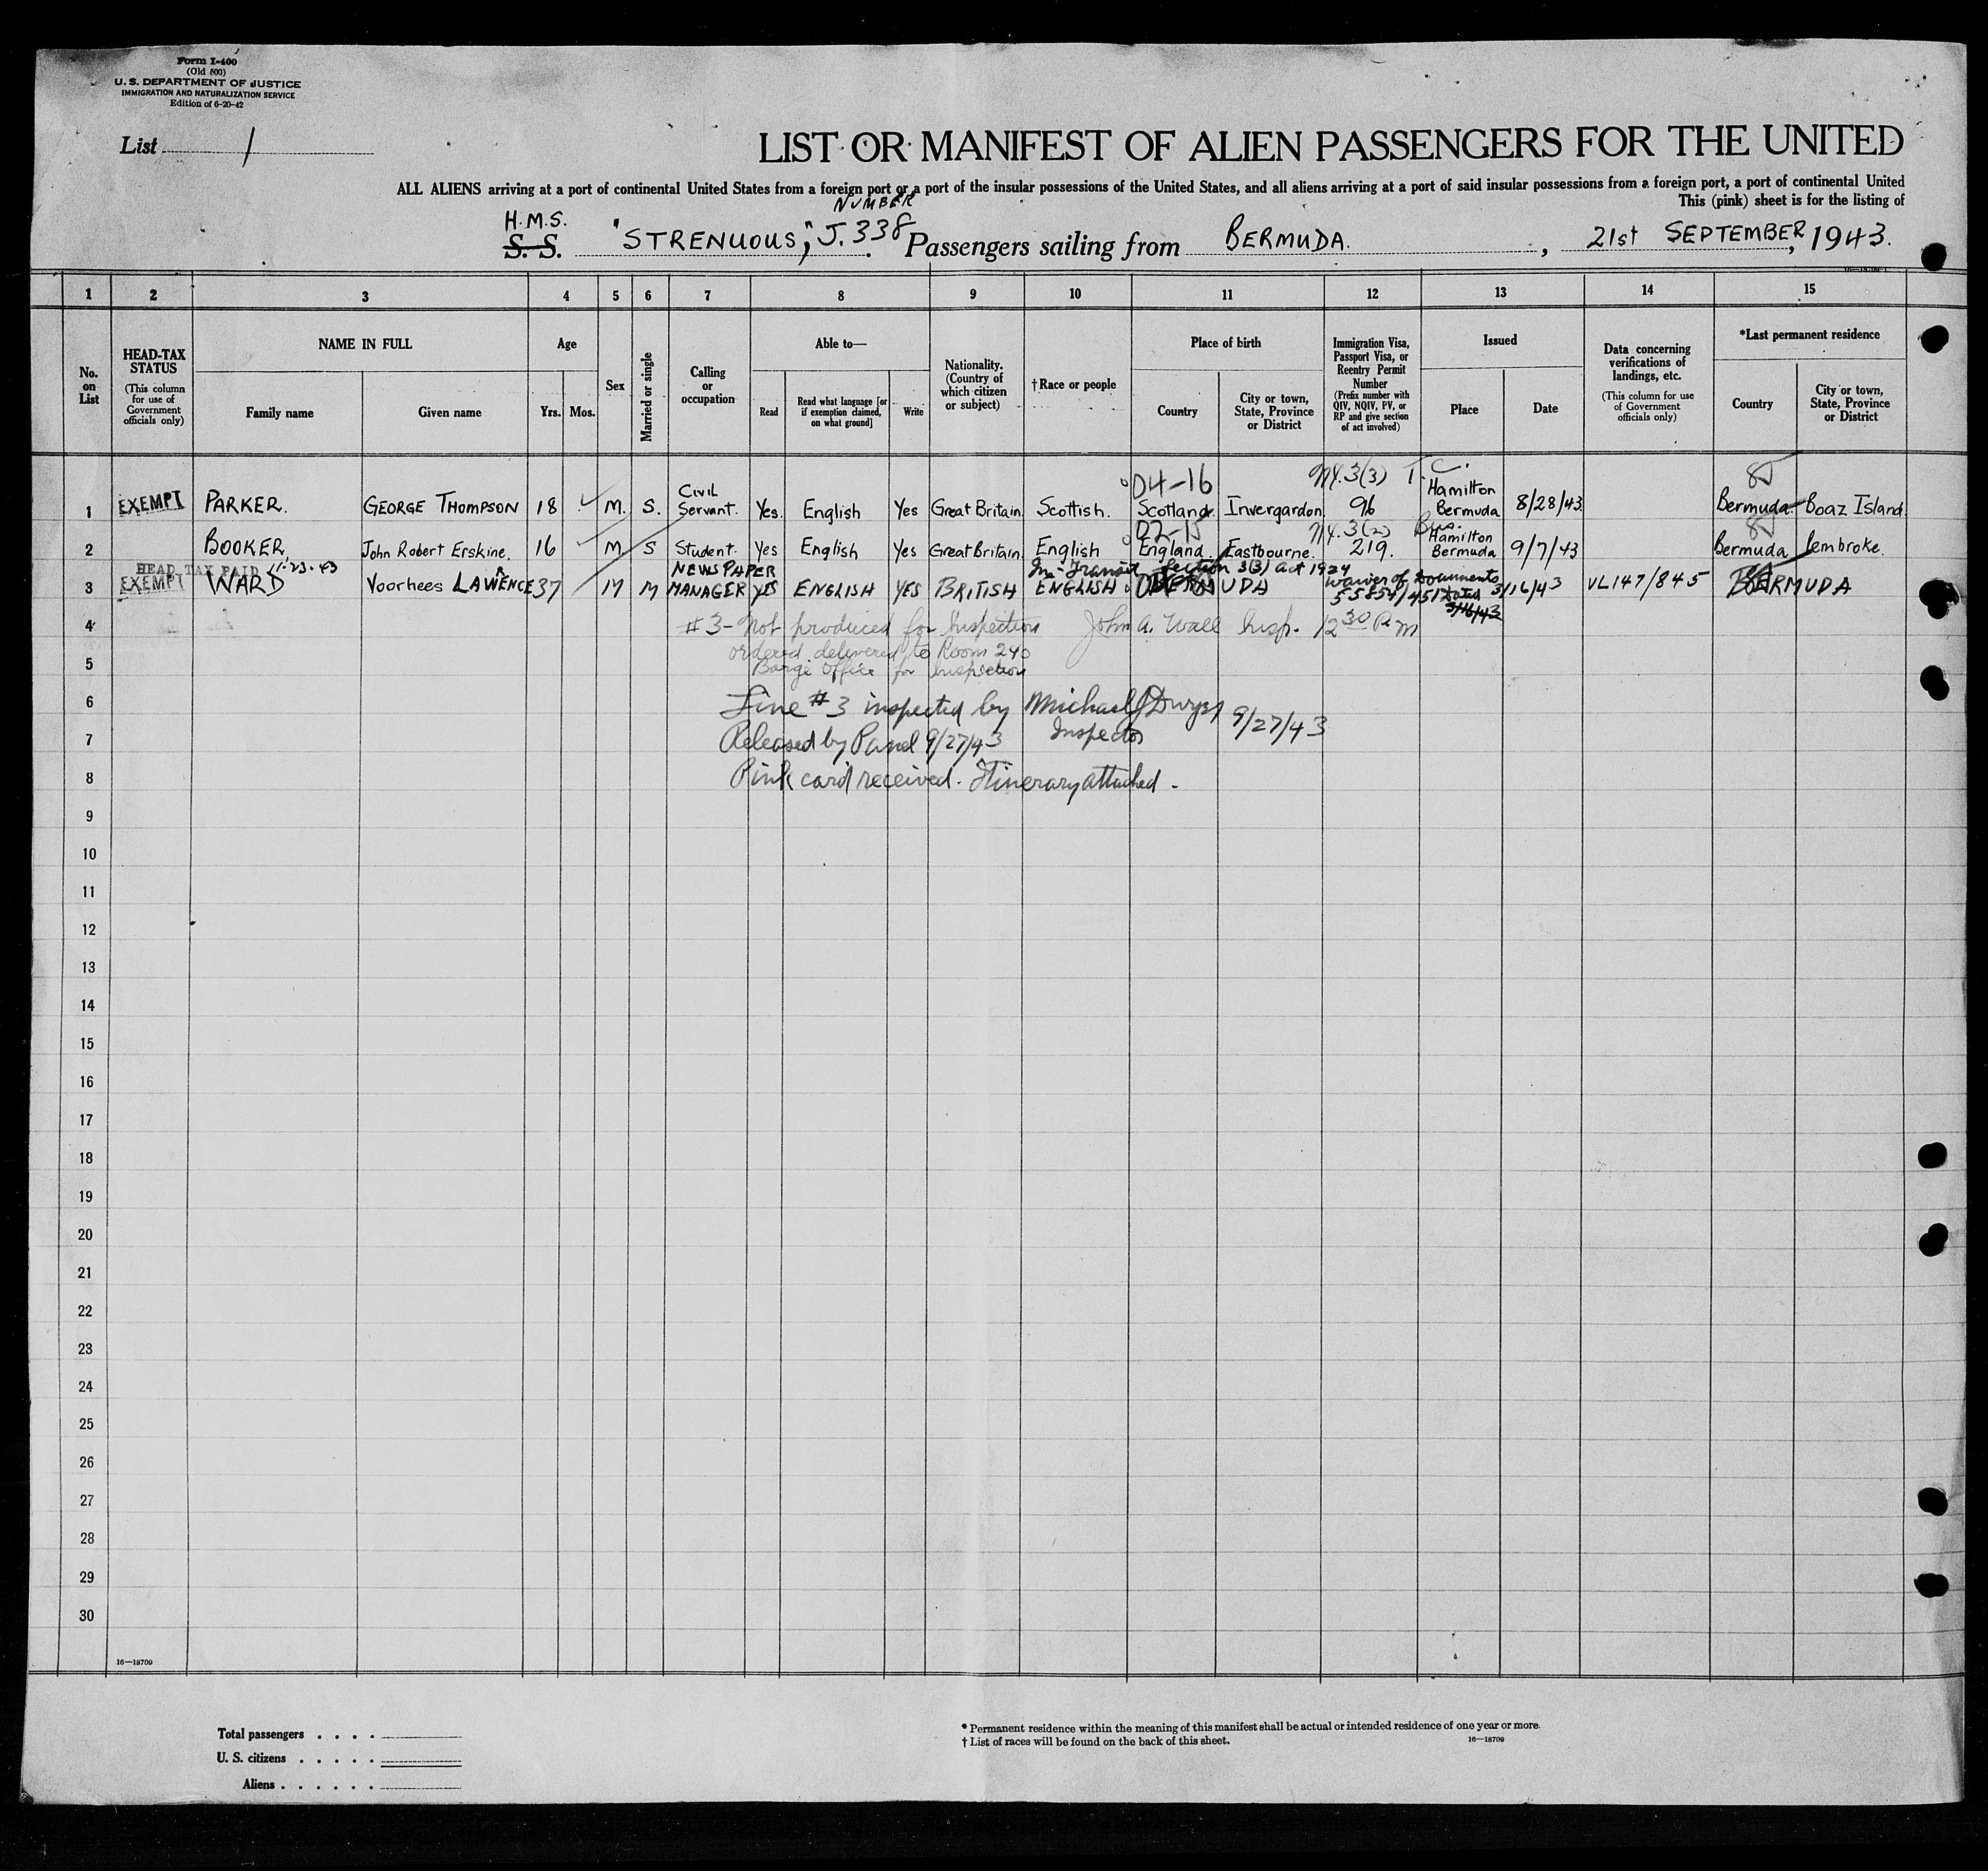 Form I-400
(Old 500)
U. S. DEPARTMENT OF JUSTICE
IMMIGRATION AND NATURALIZATION SERVICE
Edition of 6-20-42
List 1
LIST OR MANIFEST OF ALIEN PASSENGERS FOR THE UNITED
ALL ALIENS arriving at a port of continental United States from a foreign port or a port of the insular possessions of the United States, and all aliens arriving at a port of said insular possessions from a foreign port, a port of continental United
This (pink) sheet is for the listing of
NUMBER
H.M.S.
S. S. "STRENUOUS," J.338 Passengers sailing from BERMUDA. , 21st SEPTEMBER, 1943.
1 2 3 4 5 6 7 8 9 10 11 12 13 14 15
No. on List
HEAD-TAX STATUS
(This column for use of Government officials only)
NAME IN FULL
Family name
Given name
Age
Yrs.
Mos.
Sex
Married or single
Calling or occupation
Able to—
Read
Read what language [or if exemption claimed, on what ground]
Write
Nationality. (Country of which citizen or subject)
†Race or people
Place of birth
Country
City or town, State, Province or District
Immigration Visa, Passport Visa, or Reentry Permit Number
(Prefix number with QIV, NQIV, PV, or RP and give section of act involved)
Issued
Place
Date
Data concerning verifications of landings, etc.
(This column for use of Government officials only)
*Last permanent residence
Country
City or town, State, Province or District
D4-16 3(3) T.C.
1 EXEMPT PARKER. GEORGE THOMPSON 18 M. S. Civil Servant. Yes. English Yes Great Britain. Scottish. Scotland. Invergordon. 96 Hamilton Bermuda 8/28/43. Bermuda Boaz Island.
D2-15 3(2)
2 BOOKER John Robert Erskine. 16 M S Student. Yes English Yes Great Britain. English England. Eastbourne. 219. Hamilton Bermuda 9/7/43 Bermuda Pembroke.
HEAD TAX PAID 11-23-43
In-Transit Section 3(3) Act 1924
3 EXEMPT WARD Voorhees LAWRENCE 37 M M NEWSPAPER MANAGER YES ENGLISH YES BRITISH ENGLISH BERMUDA Waiver of Documents 3/16/43 VL147/845 BERMUDA
4 #3- Not produced for Inspection John A. Wall Insp. 12 30 P.m
ordered delivered to Room 240
5 Barge Office for Inspection
6 Line #3 inspected by Michael J Dwyer 9/27/43
7 Released by Panel 9/27/43 Inspector
8 Pink card received. Itinerary attached.
9
10
11
12
13
14
15
16
17
18
19
20
21
22
23
24
25
26
27
28
29
30
16—18709
Total passengers
U. S. citizens
Aliens
* Permanent residence within the meaning of this manifest shall be actual or intended residence of one year or more.
† List of races will be found on the back of this sheet.
16—18709